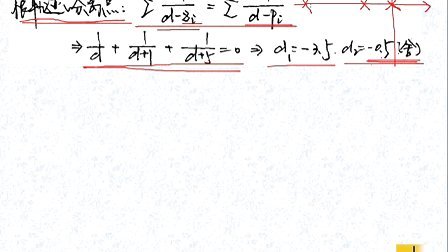 根轨迹分离点: ∑ 1/(d-zᵢ) = ∑ 1/(d-pᵢ)
⇒ 1/d + 1/(d+1) + 1/(d+5) = 0 ⇒ d₁=-3.5 d₂=-0.5(舍)